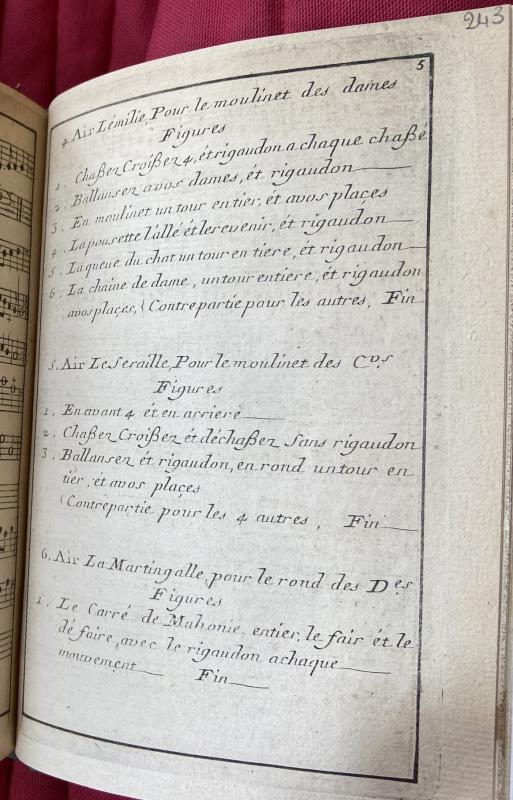 243
5
4. Air Lémilie, Pour le moulinet des dames
Figures
1. Chaßez Croißez 4, ét rigaudon a chaque chaßé
2. Ballansez avos dames, ét rigaudon
3. En moulinet un tour en tier, ét avos places
4. La pousette l'allé et lerevenir, ét rigaudon
5. La queue du chat un tour en tiere, ét rigaudon
6. La chaine de dame, un tour entiere, ét rigaudon
avos plaçes, (Contrepartie pour les autres, Fin
5. Air Le Seraille, Pour le moulinet des Cvs
Figures
1. En avant 4 ét en arriere
2. Chaßez Croißez ét déchaßez Sans rigaudon
3. Ballansez ét rigaudon, en rond un tour en
tier, ét avos plaçes
(Contrepartie pour les 4 autres, Fin
6. Air La Martingalle, pour le rond des Des
Figures
1. Le Carré de Mahonie entier, le fair ét le
dé faire, avec le rigaudon achaque
mouvement Fin